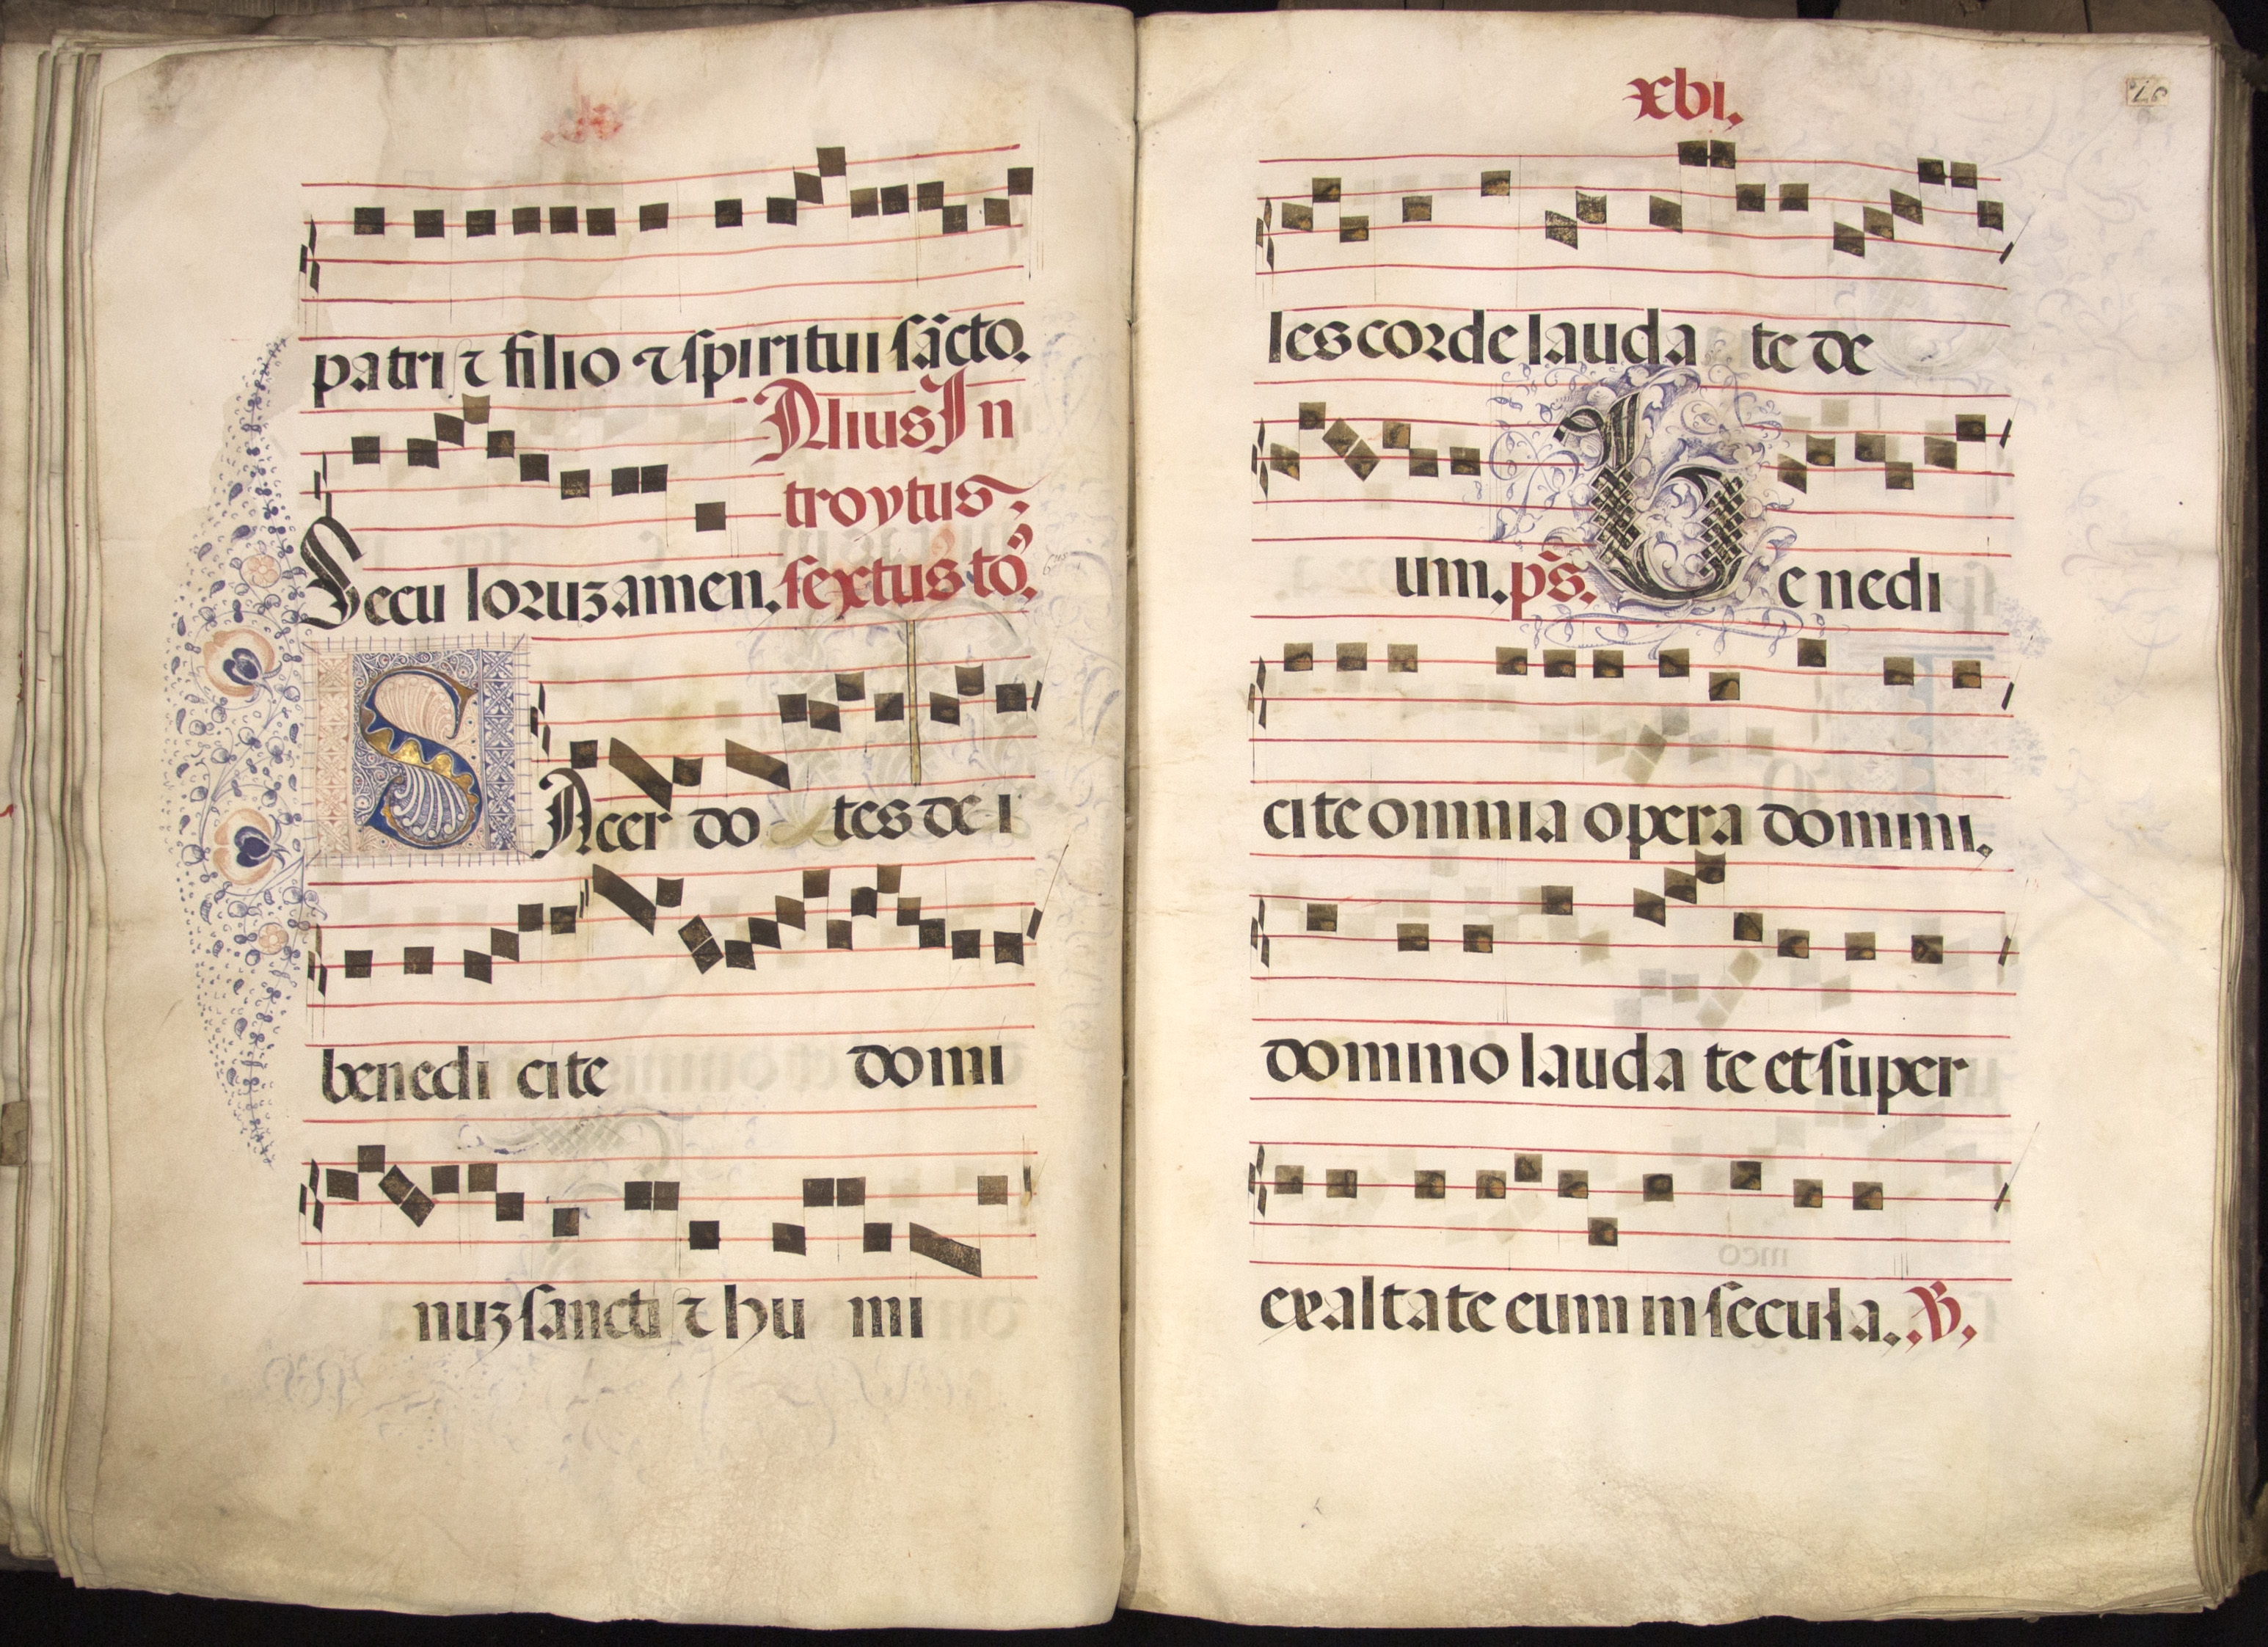 patri ⁊ filio ⁊ spiritui sācto.
Alius In
troytus.
Secu loruꝫ amen. sextus to.
SAcer do tes de i
benedi cite domi
nuꝫ sancti ⁊ hu mi
xvi.
16
les corde lauda te de
um. ps. Benedi
cite omnia opera domini.
domino lauda te et super
exaltate eum in secula. V.